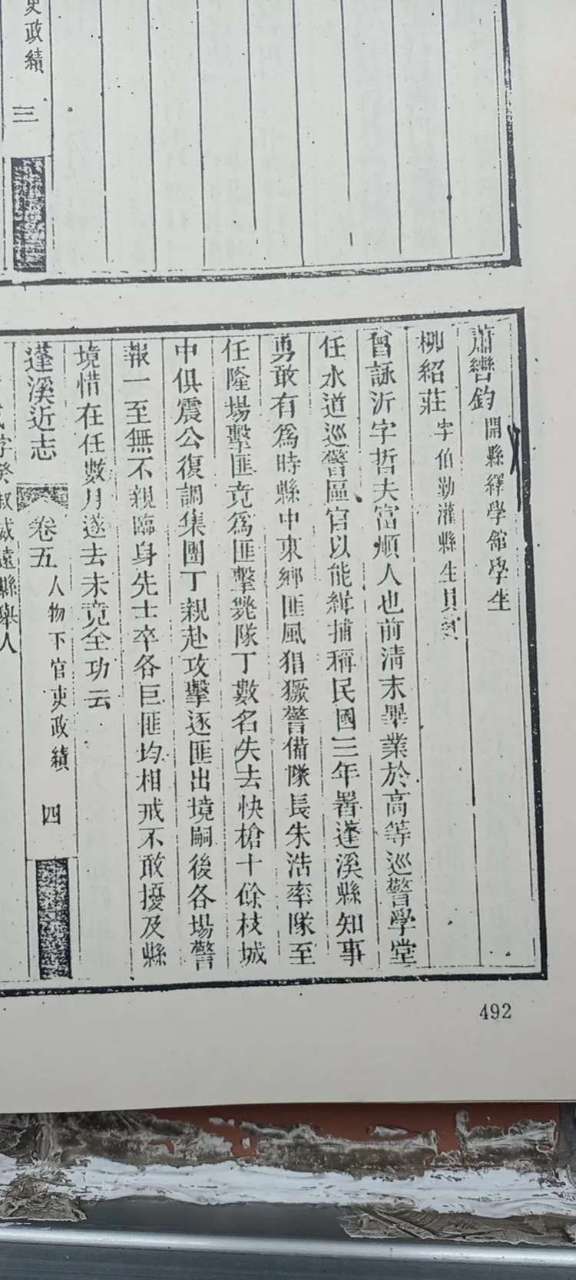 吏政績 三
蕭轡鈞 開縣繹學館學生
柳紹莊 字伯勤灌縣生員
曾詠沂字哲夫富順人也前清末畢業於高等巡警學堂
任水道巡警區官以能緝捕稱民國三年署蓬溪縣知事
勇敢有爲時縣中東鄉匪風猖獗警備隊長朱浩率隊至
任隆場擊匪竟爲匪擊斃隊丁數名失去快槍十餘枝城
中俱震公復調集團丁親赴攻擊逐匪出境嗣後各場警
報一至無不親臨身先士卒各巨匪均相戒不敢擾及縣
境惜在任數月遂去未竟全功云
蓬溪近志 卷五 人物下官吏政績 四
字癸叔威遠縣舉人
492